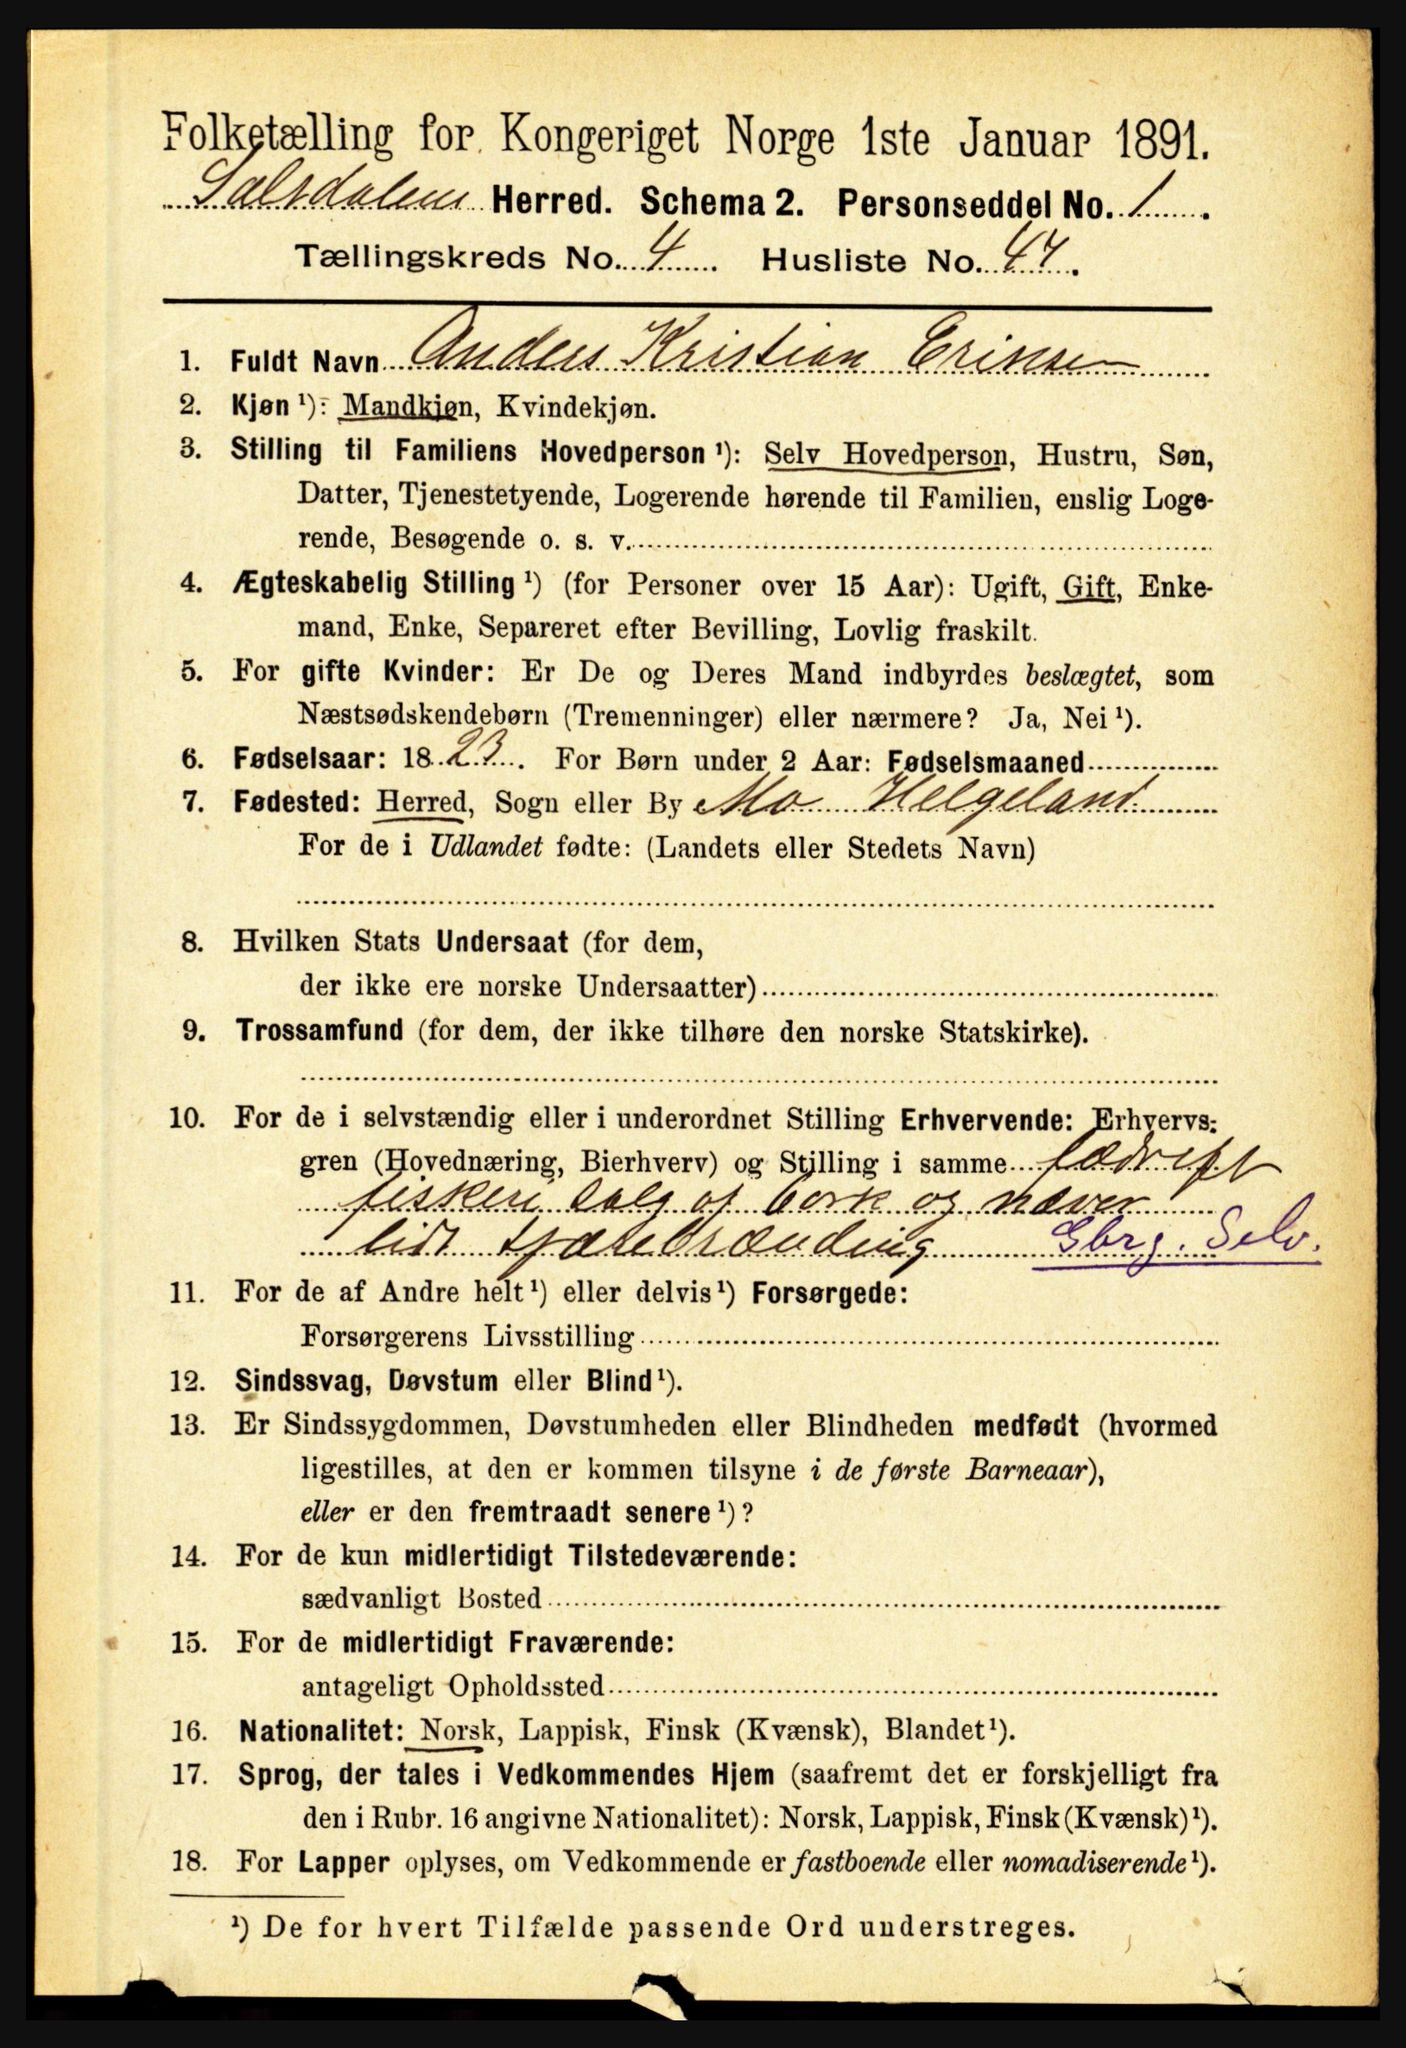 Folketælling for Kongeriget Norge 1ste Januar 1891.
Saltdalen Herred. Schema 2. Personseddel No. 1.
Tællingskreds No. 4. Husliste No. 47.
1. Fuldt Navn Anders Kristian Erinsen
2. Kjøn ¹): Mandkjøn, Kvindekjøn.
3. Stilling til Familiens Hovedperson ¹): Selv Hovedperson, Hustru, Søn,
Datter, Tjenestetyende, Logerende hørende til Familien, enslig Loge-
rende, Besøgende o. s. v.
4. Ægteskabelig Stilling ¹) (for Personer over 15 Aar): Ugift, Gift, Enke-
mand, Enke, Separeret efter Bevilling, Lovlig fraskilt.
5. For gifte Kvinder: Er De og Deres Mand indbyrdes beslægtet, som
Næstsødskendebørn (Tremenninger) eller nærmere? Ja, Nei ¹).
6. Fødselsaar: 1823. For Børn under 2 Aar: Fødselsmaaned
7. Fødested: Herred, Sogn eller By Mo Helgeland
For de i Udlandet fødte: (Landets eller Stedets Navn)
8. Hvilken Stats Undersaat (for dem,
der ikke ere norske Undersaatter)
9. Trossamfund (for dem, der ikke tilhøre den norske Statskirke).
10. For de i selvstændig eller i underordnet Stilling Erhvervende: Erhvervs-
gren (Hovednæring, Bierhverv) og Stilling i samme fædrift
fiskeri salg af bark og næver
lidt tjærebrænding Gbrg. Selv.
11. For de af Andre helt ¹) eller delvis ¹) Forsørgede:
Forsørgerens Livsstilling
12. Sindssvag, Døvstum eller Blind ¹).
13. Er Sindssygdommen, Døvstumheden eller Blindheden medfødt (hvormed
ligestilles, at den er kommen tilsyne i de første Barneaar),
eller er den fremtraadt senere ¹)?
14. For de kun midlertidigt Tilstedeværende:
sædvanligt Bosted
15. For de midlertidigt Fraværende:
antageligt Opholdssted
16. Nationalitet: Norsk, Lappisk, Finsk (Kvænsk), Blandet ¹).
17. Sprog, der tales i Vedkommendes Hjem (saafremt det er forskjelligt fra
den i Rubr. 16 angivne Nationalitet): Norsk, Lappisk, Finsk (Kvænsk) ¹).
18. For Lapper oplyses, om Vedkommende er fastboende eller nomadiserende ¹).
¹) De for hvert Tilfælde passende Ord understreges.